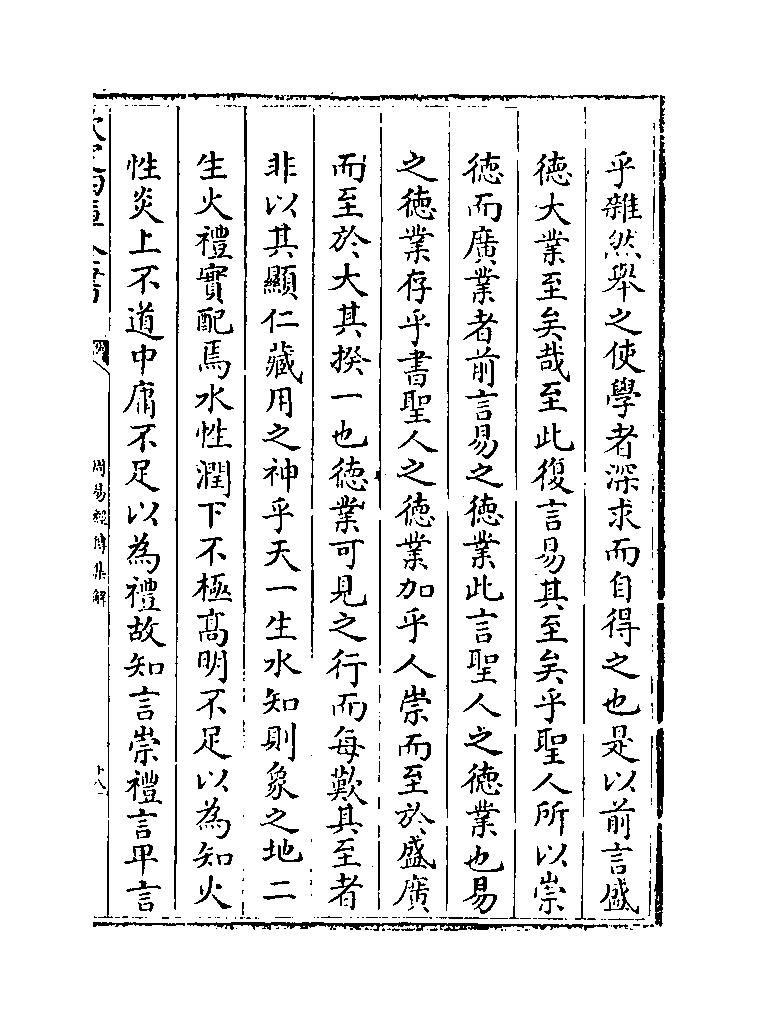 乎雜然舉之使學者深求而自得之也是以前言盛
德大業至矣哉至此復言易其至矣乎聖人所以崇
德而廣業者前言易之德業此言聖人之德業也易
之德業存乎書聖人之德業加乎人崇而至於盛廣
而至於大其揆一也德業可見之行而每歎其至者
非以其顯仁藏用之神乎天一生水知則象之地二
生火禮實配焉水性潤下不極髙明不足以為知火
性炎上不道中庸不足以為禮故知言崇禮言卑言
欽定四庫全書
周易經傳集解
十八